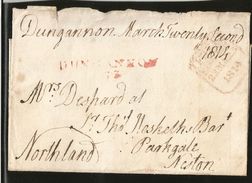 Dungannon March Twenty Second
1814
DUNGANNON
Mrs Despard at
Sr Thos Heskeths Bart
Parkgate
Northland Neston